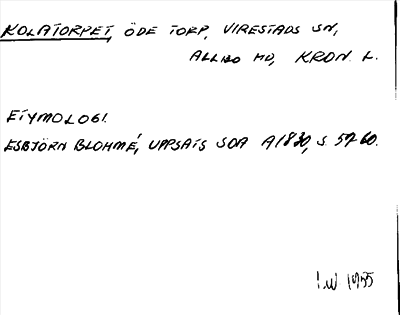 KOLATORPET, ÖDE TORP, VIRESTADS SN,
ALLBO HD, KRON. L.
ETYMOLOGI.
ESBJÖRN BLOHMÉ, UPPSATS SOA A1830, S. 59-60.
I.W 1955